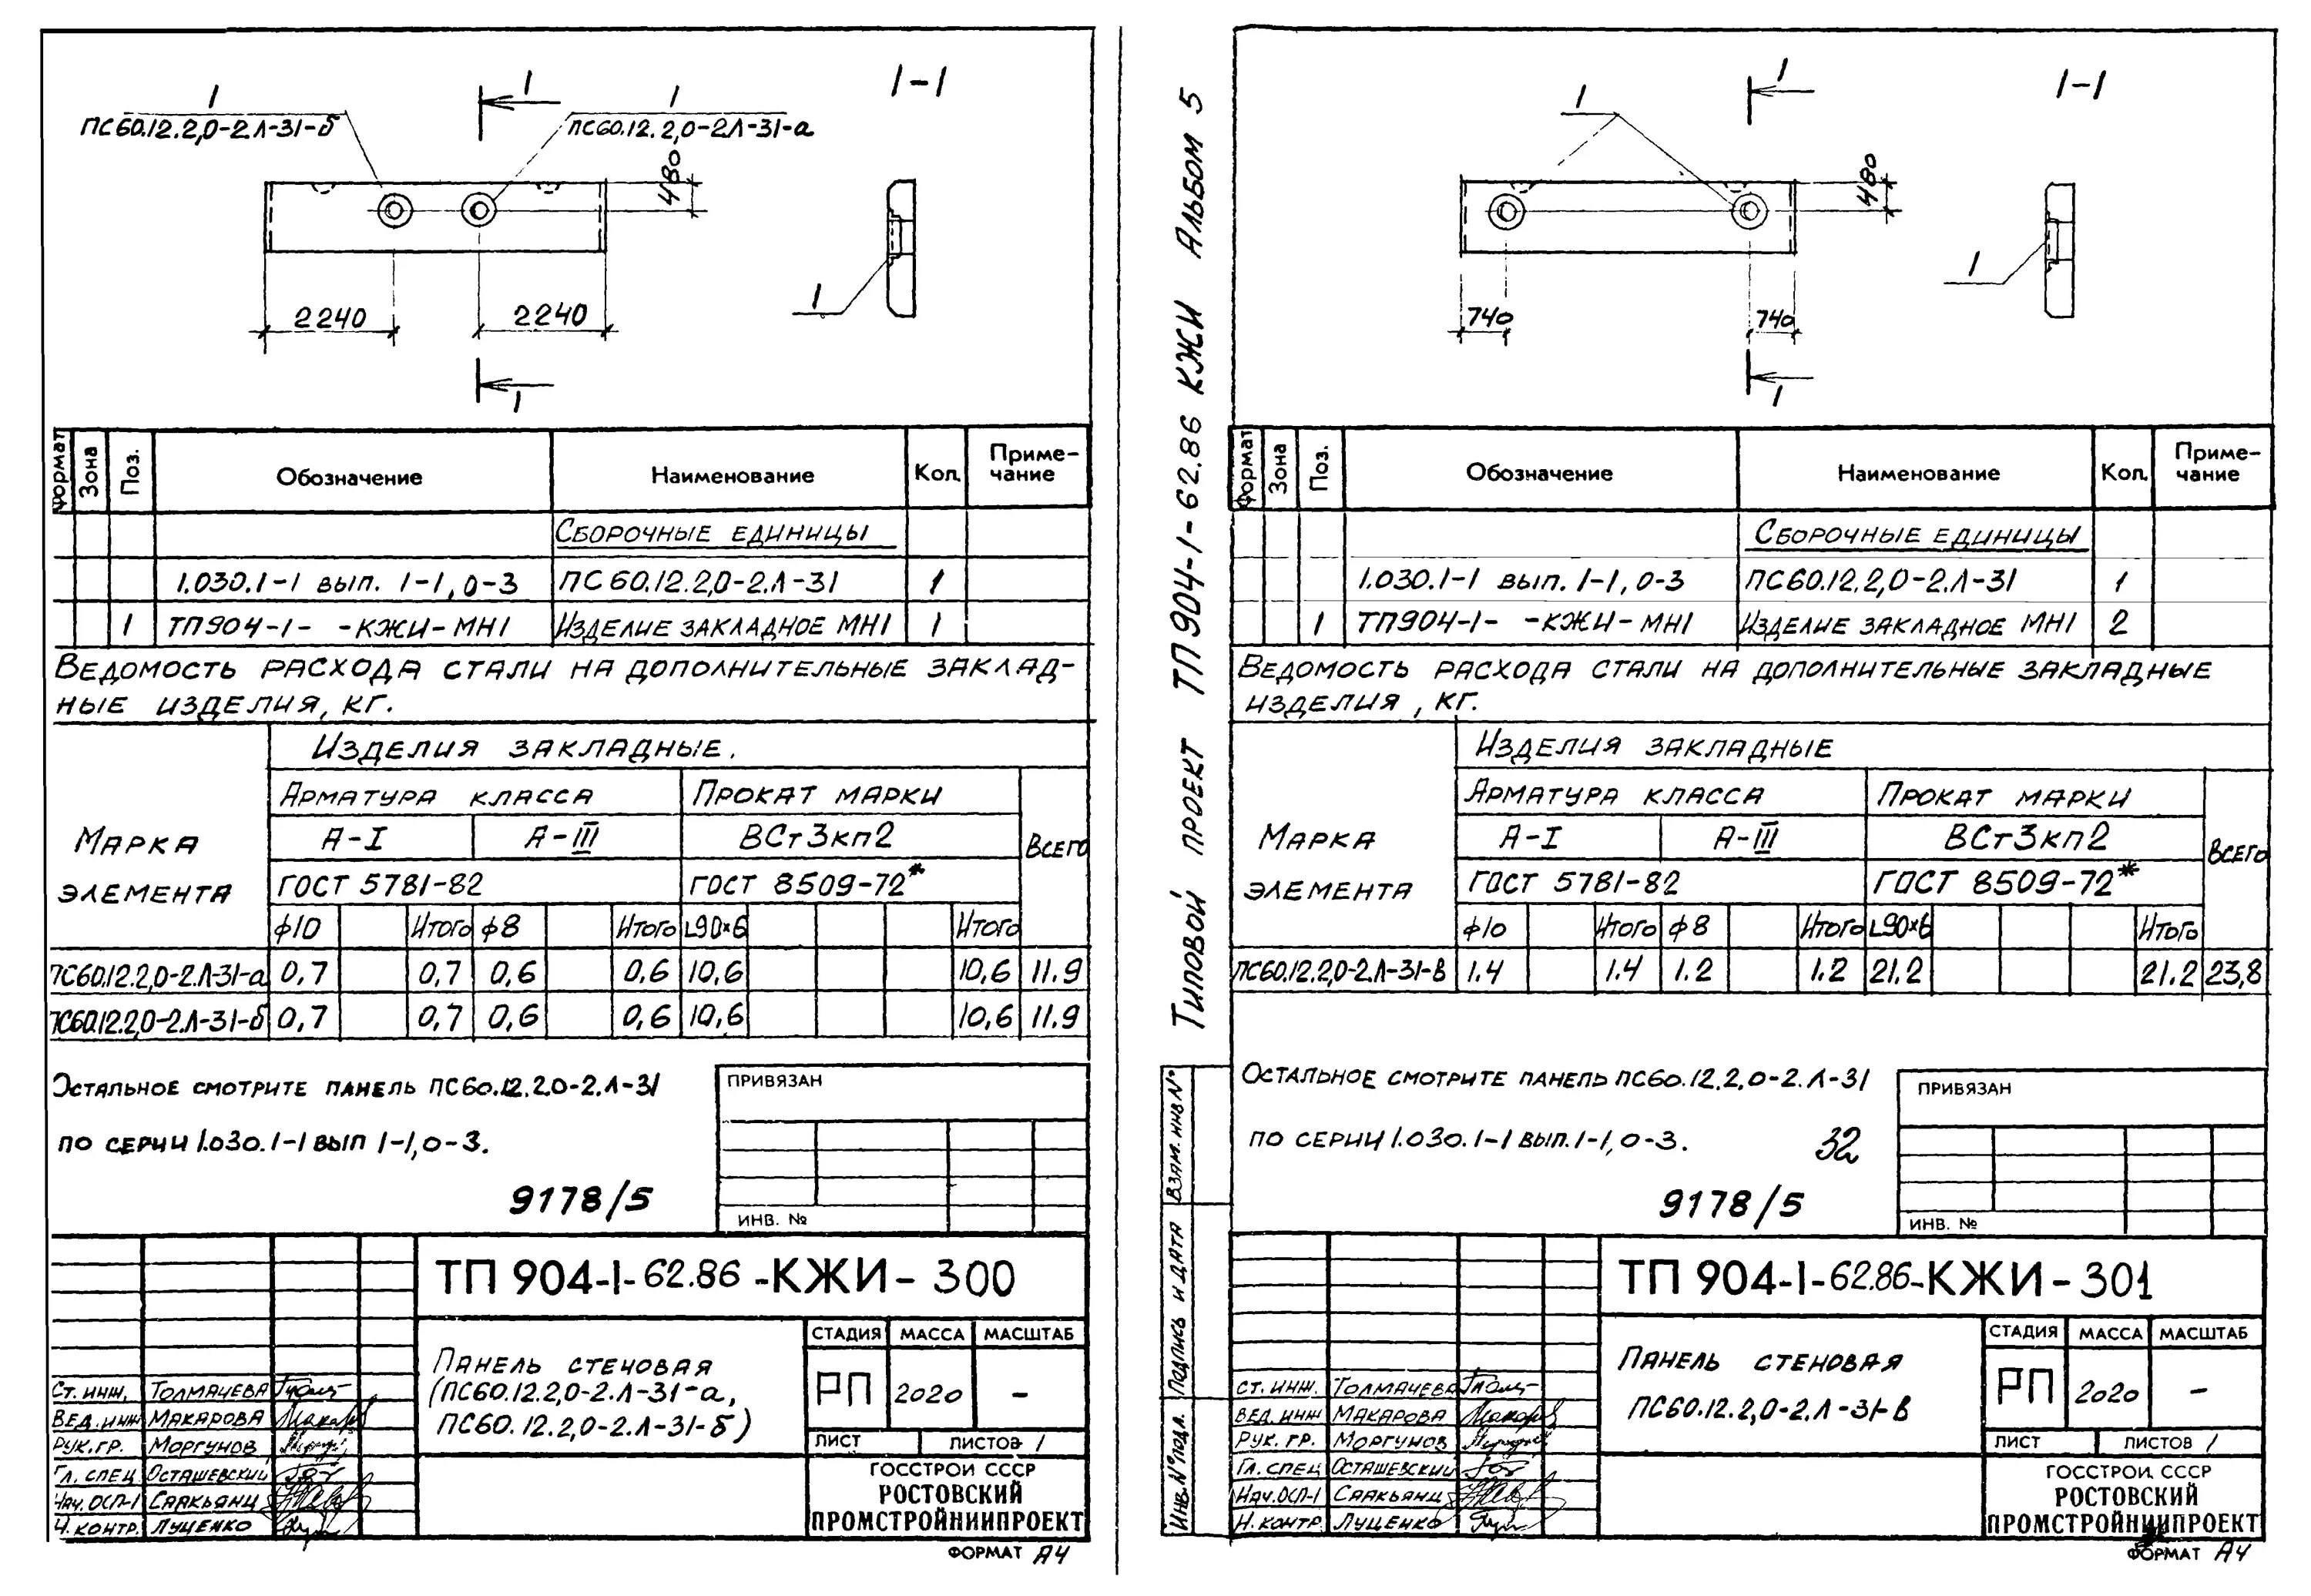 1
ПС60.12.2,0-2.Л-31-б
1
1
ПС60.12.2,0-2.Л-31-а
1-1
480
2240
2240
1
1
Формат
Зона
Поз.
Обозначение
Наименование
Кол.
Приме-
чание
Сборочные единицы
1.030.1-1 вып. 1-1, 0-3
ПС60.12.2,0-2.Л-31
1
1
ТП904-1- -КЖИ-МН1
Изделие закладное МН1
1
Ведомость расхода стали на дополнительные заклад-
ные изделия, кг.
Марка
элемента
Изделия закладные.
Арматура класса
Прокат марки
Всего
А-I
А-III
ВСт3кп2
ГОСТ 5781-82
ГОСТ 8509-72*
ф10
Итого
ф8
Итого
L90×6
Итого
ПС60.12.2,0-2.Л-31-а 0,7 0,7 0,6 0,6 10,6 10,6 11.9
ПС60.12.2,0-2.Л-31-б 0,7 0,7 0,6 0,6 10,6 10,6 11.9
Остальное смотрите панель ПС60.12.2,0-2.Л-31
по серии 1.030.1-1 вып 1-1, 0-3.
9178/5
ПРИВЯЗАН
ИНВ. №
ТП 904-1-62.86-КЖИ-300
Панель стеновая
(ПС60.12.2,0-2.Л-31-а,
ПС60.12.2,0-2.Л-31-б)
СТАДИЯ МАССА МАСШТАБ
РП 2020 –
ЛИСТ ЛИСТОВ 1
Ст. инж. Толмачева
Вед. инж Макарова
Рук. гр. Моргунов
Гл. спец Осташевский
Нач. ОСП-1 Саакьянц
Н. контр. Луценко
ГОССТРОЙ СССР
РОСТОВСКИЙ
ПРОМСТРОЙНИИПРОЕКТ
ФОРМАТ А4
Типовой проект ТП 904-1-62.86 КЖИ Альбом 5
Взам. инв №
Подпись и дата
Инв. № подл.
1
1
1-1
480
740
740
1
1
Формат
Зона
Поз.
Обозначение
Наименование
Кол.
Приме-
чание
Сборочные единицы
1.030.1-1 вып. 1-1, 0-3
ПС60.12.2,0-2.Л-31
1
1
ТП904-1- -КЖИ-МН1
Изделие закладное МН1
2
Ведомость расхода стали на дополнительные закладные
изделия, кг.
Марка
элемента
Изделия закладные
Арматура класса
Прокат марки
Всего
А-I
А-III
ВСт3кп2
ГОСТ 5781-82
ГОСТ 8509-72*
ф10
Итого
ф8
Итого
L90×6
Итого
ПС60.12.2,0-2.Л-31-в 1.4 1.4 1.2 1.2 21.2 21.2 23,8
Остальное смотрите панель ПС60.12.2,0-2.Л-31
по серии 1.030.1-1 вып. 1-1, 0-3.
32
9178/5
ПРИВЯЗАН
ИНВ. №
ТП 904-1-62.86-КЖИ-301
Панель стеновая
ПС60.12.2,0-2.Л-31-в
СТАДИЯ МАССА МАСШТАБ
РП 2020 –
ЛИСТ ЛИСТОВ 1
Ст. инж. Толмачева
Вед. инж Макарова
Рук. гр. Моргунов
Гл. спец Осташевский
Нач. ОСП-1 Саакьянц
Н. контр Луценко
ГОССТРОЙ СССР
РОСТОВСКИЙ
ПРОМСТРОЙНИИПРОЕКТ
ФОРМАТ А4